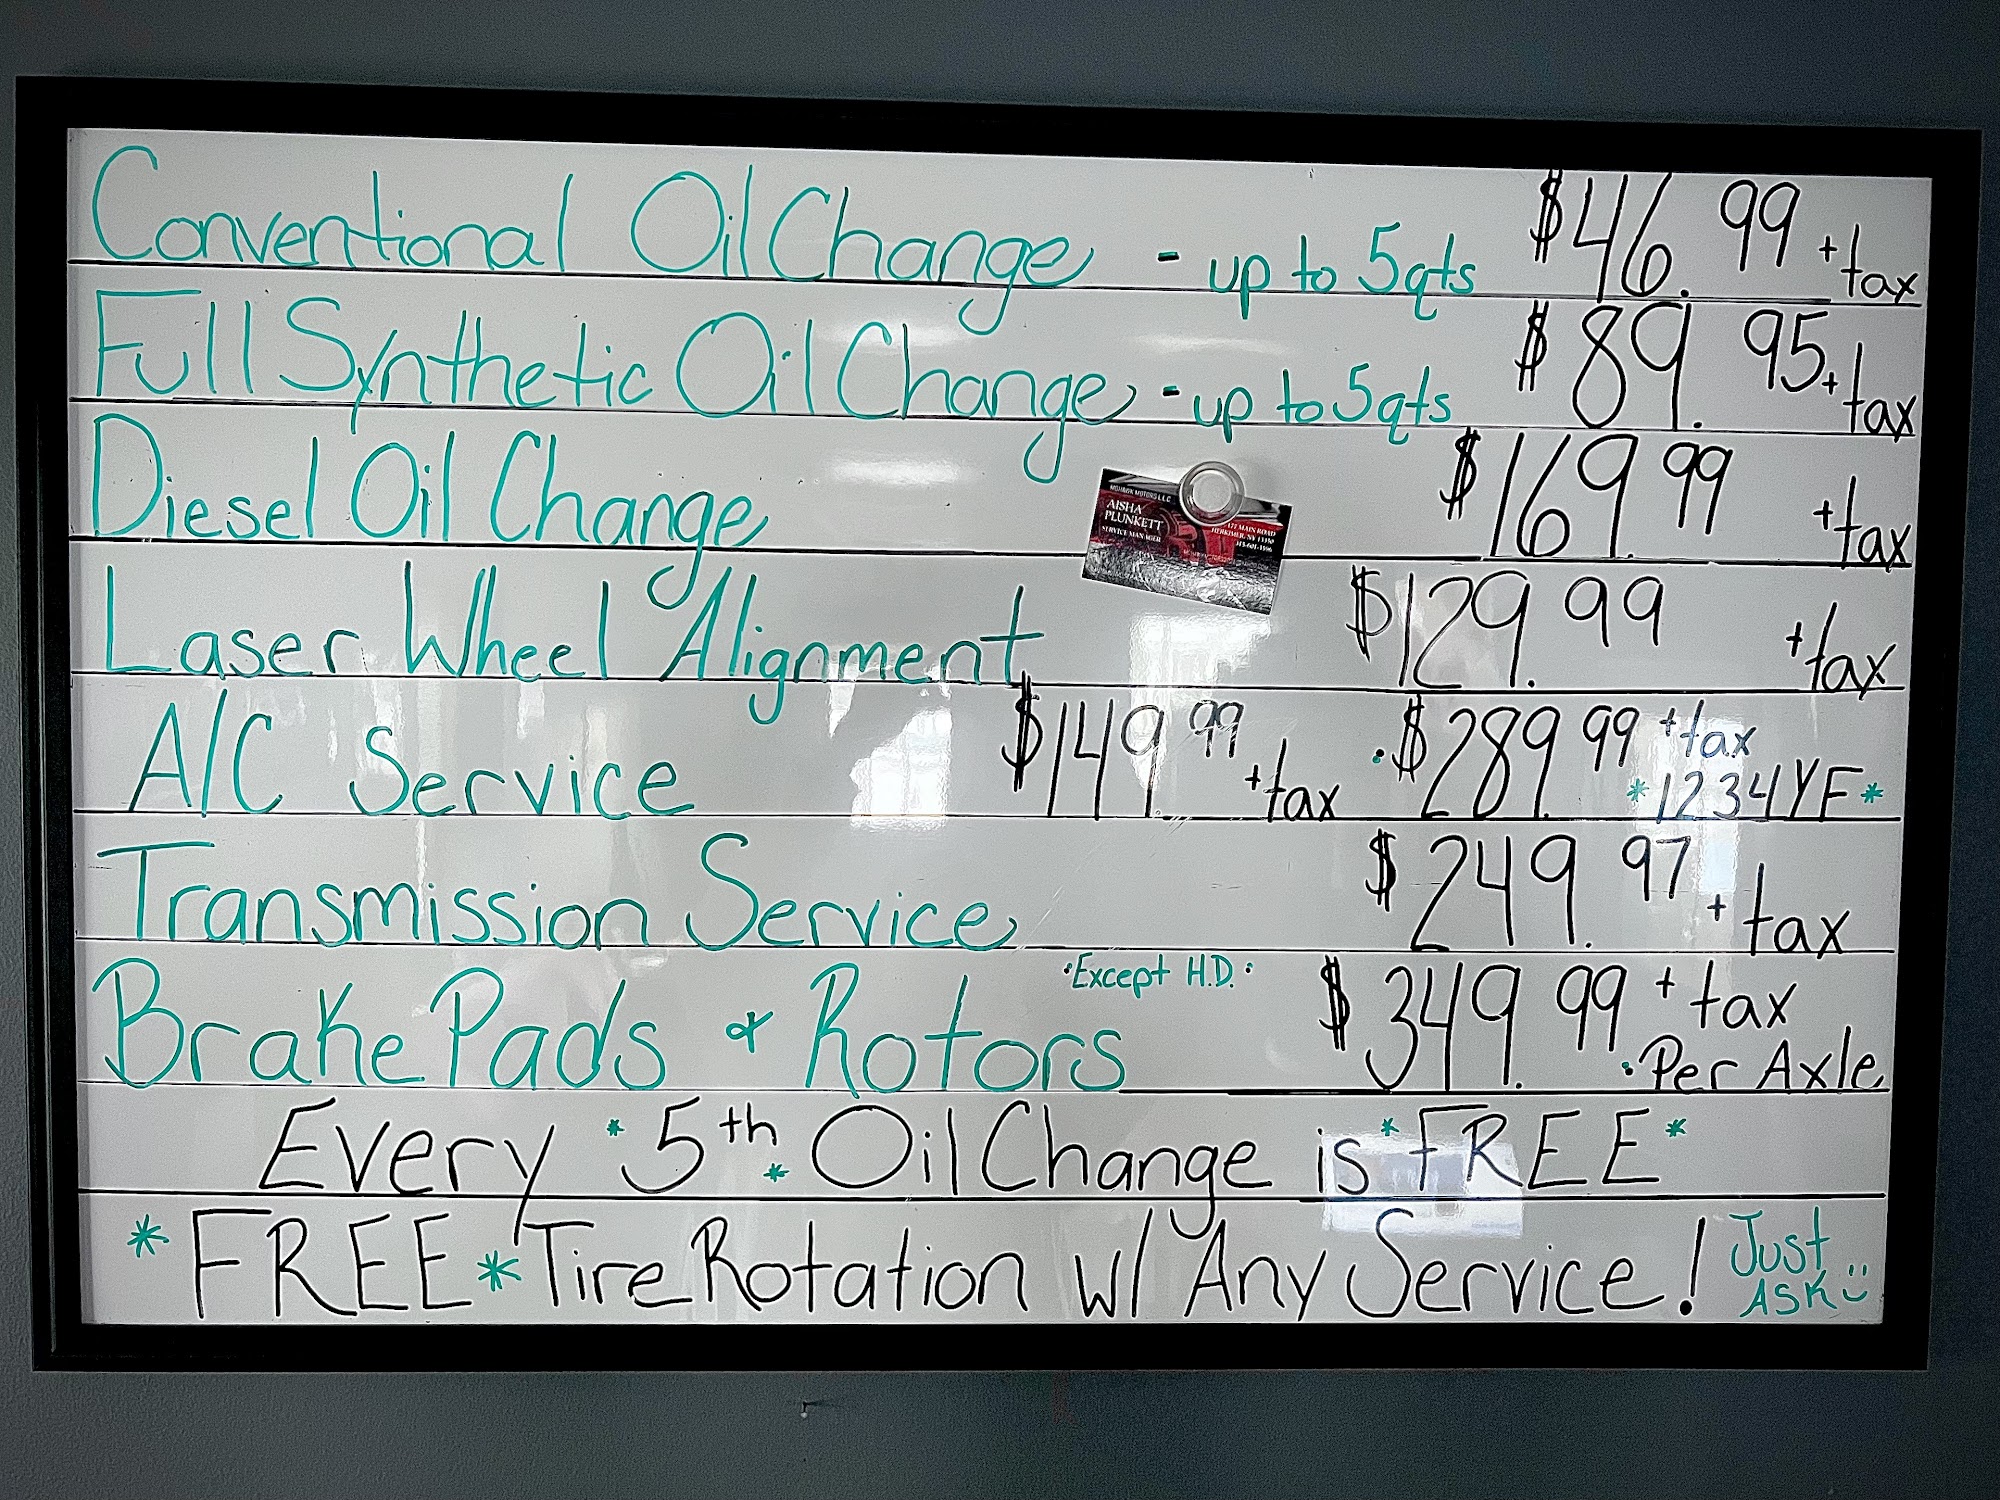 Conventional Oil Change - up to 5qts $46.99 +tax
Full Synthetic Oil Change - up to 5qts $89.95 +tax
Diesel Oil Change $169.99 +tax
MOHAWK MOTORS L.L.C
AISHA
PLUNKETT
SERVICE MANAGER
177 MAIN ROAD
HERKIMER, NY 13350
Laser Wheel Alignment $129.99 +tax
A/C Service $149.99 +tax •$289.99 +tax
*1234YF*
Transmission Service $249.97 +tax
Brake Pads & Rotors •Except H.D.• $349.99 +tax
•Per Axle
Every *5th* Oil Change is *FREE*
*FREE* Tire Rotation w/ Any Service! Just
ASK